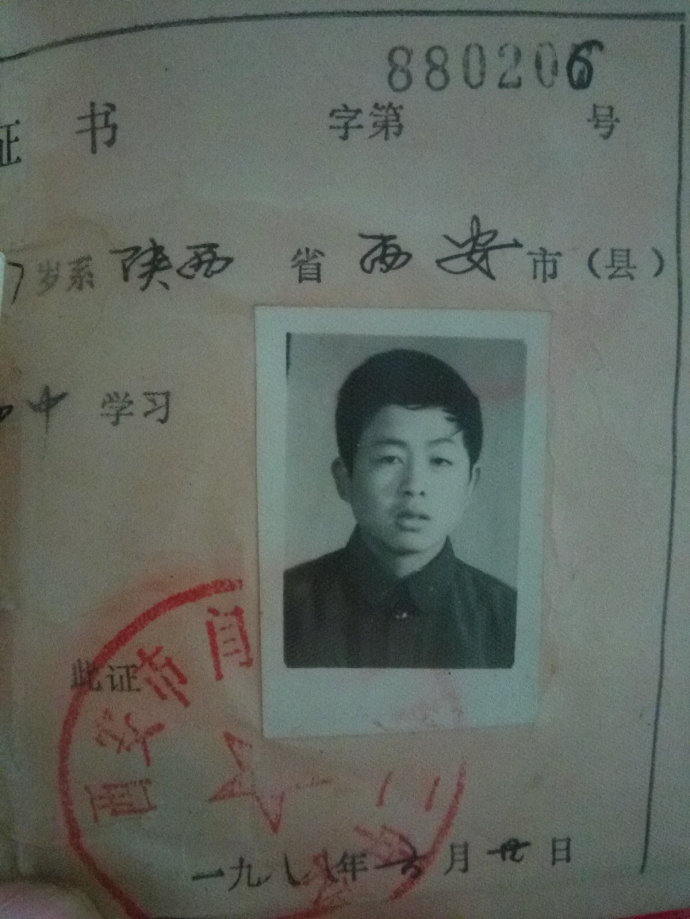 880206
证书 字第 号
7岁系陕西省西安市(县)
中 学习
此证
西安市
一九八八年六月廿日